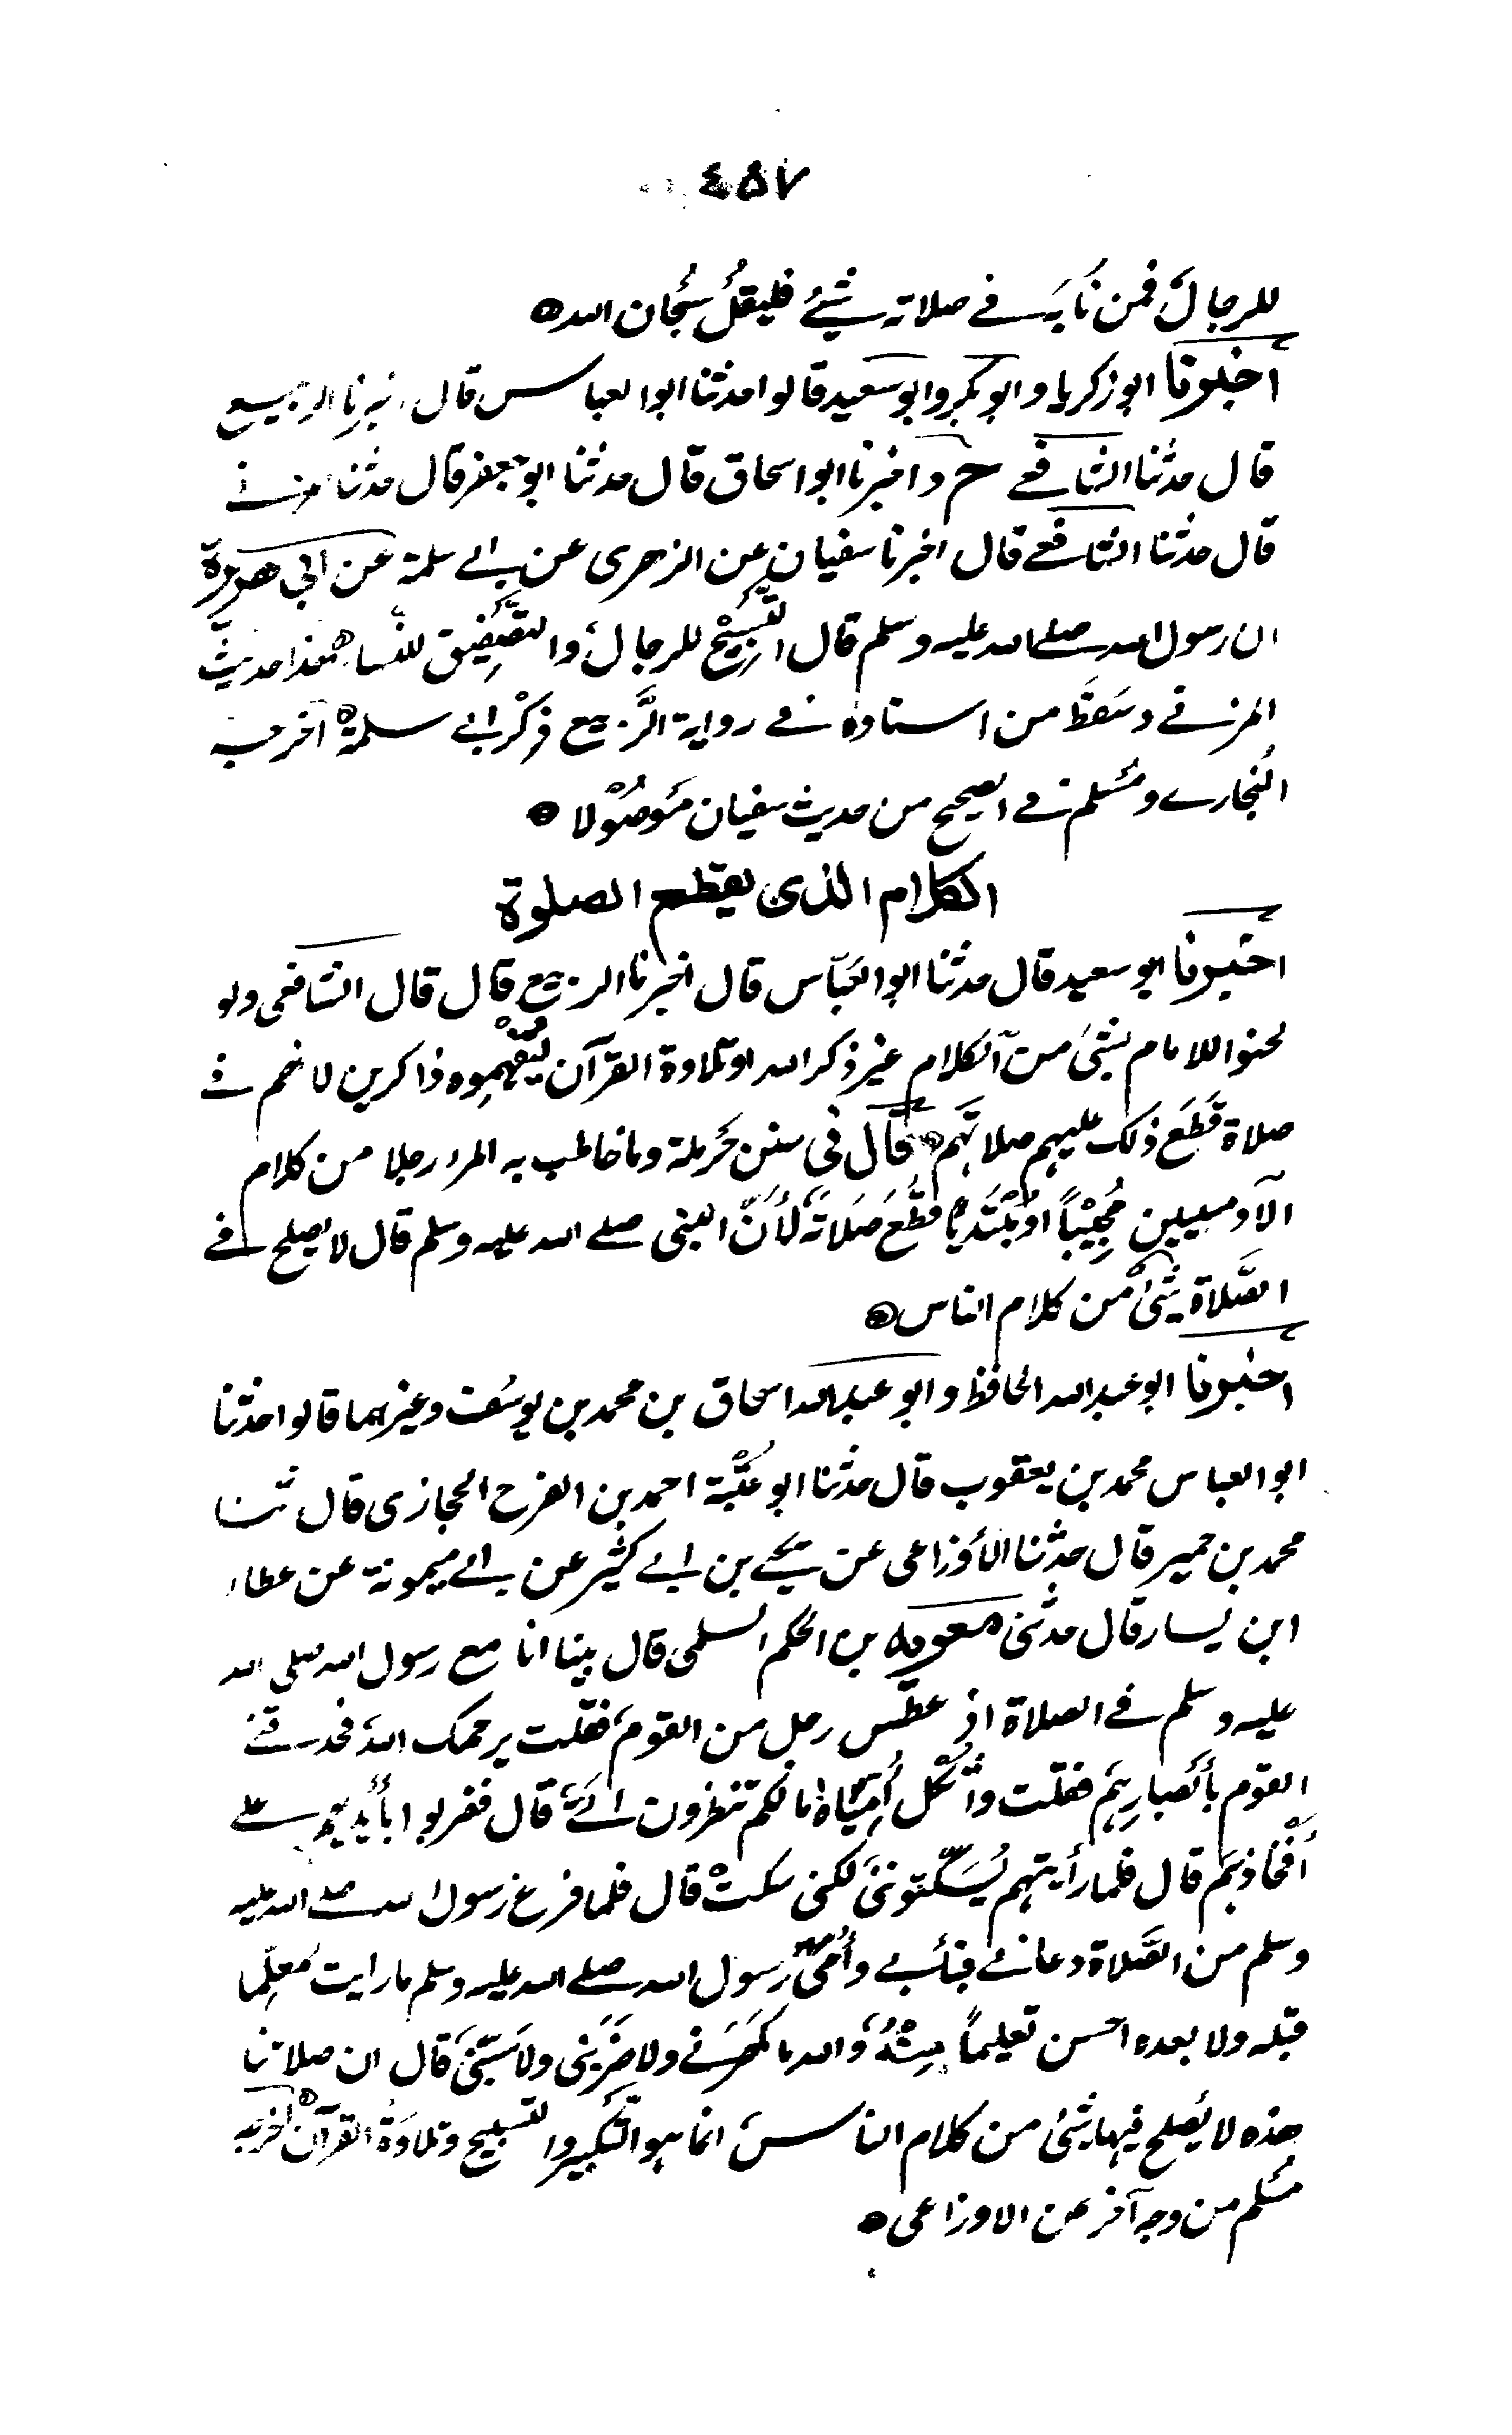 ٤٥٧
للرجال فمن نابَه في صلاته شيئ فليقل سُبحان الله
أخبرنا ابو زكريا وابو بكر وابو سعيد قالوا حدثنا ابو العباس قال اخبرنا الربيع
قال حدثنا الشافعي ح واخبرنا ابو اسحاق قال حدثنا ابو جعفر قال حدثنا المزني
قال حدثنا الشافعي قال اخبرنا سفيان عن الزهرى عن ابي سلمة عن ابي هريرة
ان رسول الله صلى الله عليه وسلم قال التَّسْبِيْح للرجال والتصْفِيق للنساء هذا حديث
المزني وسَقطَ من اسناده في رواية الرَّبيع ذكْر ابي سلمة اخرجه
البُخاري ومُسلم في الصحيح من حديث سفيان مَوصُوْلا
الكلام الذى يقطع الصلوة
اخبرنا ابو سعيد قال حدثنا ابو العَبّاس قال اخبرنا الربيع قال قال الشافعى ولو
لحنوا للامام بشئ من الكلام غير ذكر الله او تلاوة القرآن ليَفْهموه ذاكرين لانهم في
صلاة قَطَع ذلك عليهم صلاتهم قال في سنن حَرملة وما خاطب به المرء رجلا من كلام
الآدمييين مُجِيْباً اوْ مُبْتَدِيًا قَطَعَ صَلاتَه لأنَّ النبى صلى الله عليه وسلم قال لا يصلح في
الصَّلاة شئ من كلام الناس
أخبرنا ابو عبد الله الحافظ وابو عبد الله اسحاق بن محمد بن يوسُف وغيرهما قالوا حدثنا
ابو العباس محمد بن يعقوب قال حدثنا ابو عُتْبَة احمد بن الفرح الحجازى قال ثنا
محمد بن حمير قال حدثنا الأوْزاعى عن يحيى بن ابي كثير عن ابي ميمونة عن عطاء
ابن يسار قال حدثنى معوية بن الحكم السلمى قال بينا انا مع رسول الله صلى الله
عليه وسلم في الصلاة اذ عطس رجل من القوم فقلت يرحمك الله فحدقني
القوم بأبْصارِهم فقلت واثُكْل أُمِيّاه ما لكم تنظرون اليَّ قال فضربوا بأيْديهم على
أفْخاذهم قال فلما رأيتهم يُسَكِّتونَنى لكنى سكتْ قال فلما فرغ رسول الله صلى الله عليه
وسلم من الصَّلاة دعاني فبأبي وأُمّي رسول الله صلى الله عليه وسلم ما رايت مُعلِّما
قبله ولا بعده احسن تعليماً مِنْهُ والله ما كَهَرَني ولا ضَرَبَنى ولا سَبَّنى قال ان صلاتنا
هذه لا يُصلح فيها شئ من كلام الناس انما هو التكبير والتسبيح وتلاوَةُ القرآن اخرجه
مُسْلم من وجه آخر عن الاوزاعى